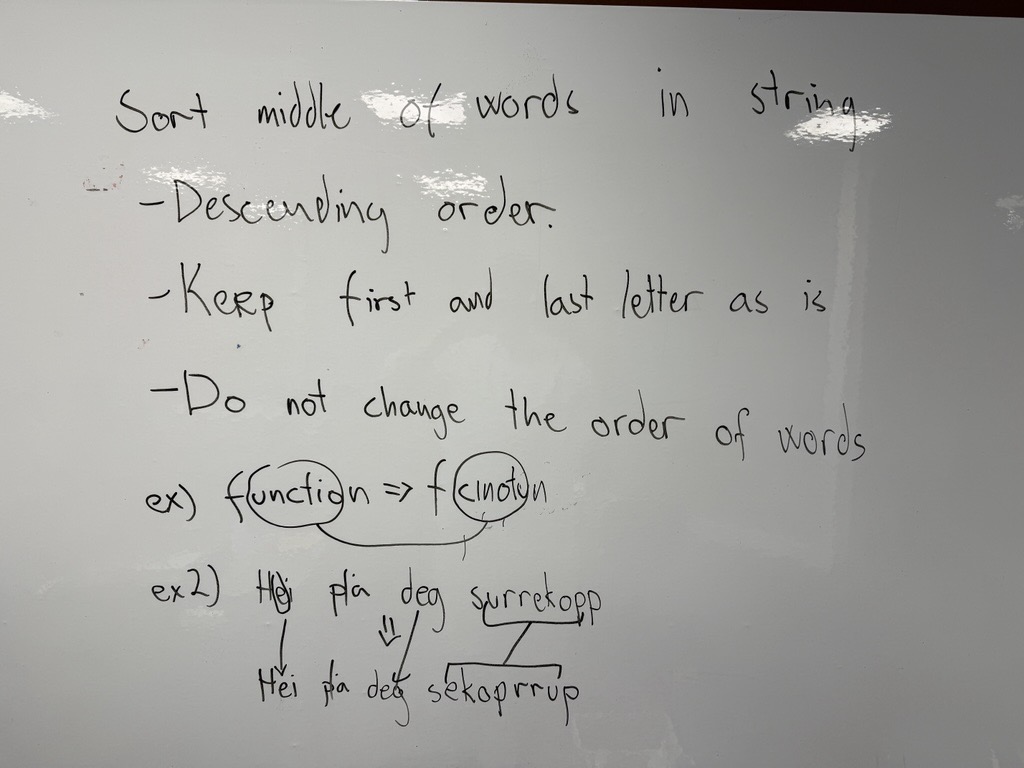 Sort middle of words in string
- Descending order.
- Keep first and last letter as is
- Do not change the order of words
ex) function => fcinotun
ex2) Hei på deg surrekopp
⇓
Hei på deg sekoprrup